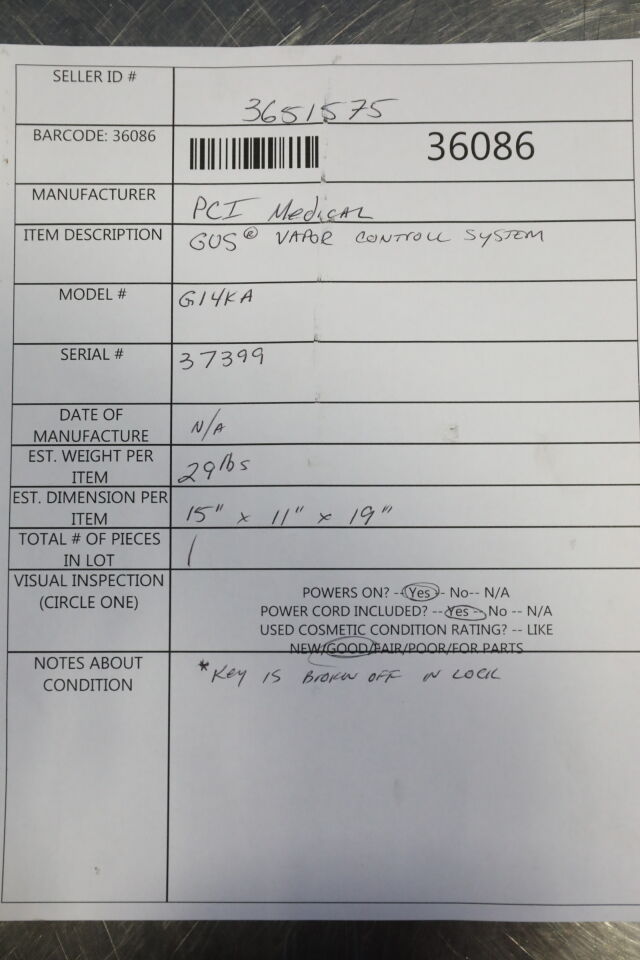 SELLER ID #
3651575
BARCODE: 36086
36086
MANUFACTURER
PCI Medical
ITEM DESCRIPTION
GUS® VAPOR CONTROLL SYSTEM
MODEL #
G14KA
SERIAL #
37399
DATE OF
MANUFACTURE
N/A
EST. WEIGHT PER
ITEM
29lbs
EST. DIMENSION PER
ITEM
15" x 11" x 19"
TOTAL # OF PIECES
IN LOT
1
VISUAL INSPECTION
(CIRCLE ONE)
POWERS ON? --Yes-- No-- N/A
POWER CORD INCLUDED? --Yes -- No -- N/A
USED COSMETIC CONDITION RATING? -- LIKE
NEW/GOOD/FAIR/POOR/FOR PARTS
NOTES ABOUT
CONDITION
*Key IS BROKN OFF IN LOCK